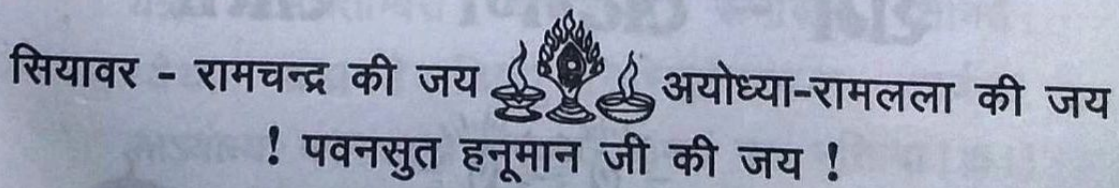 सियावर - रामचन्द्र की जय अयोध्या-रामलला की जय
! पवनसुत हनूमान जी की जय !